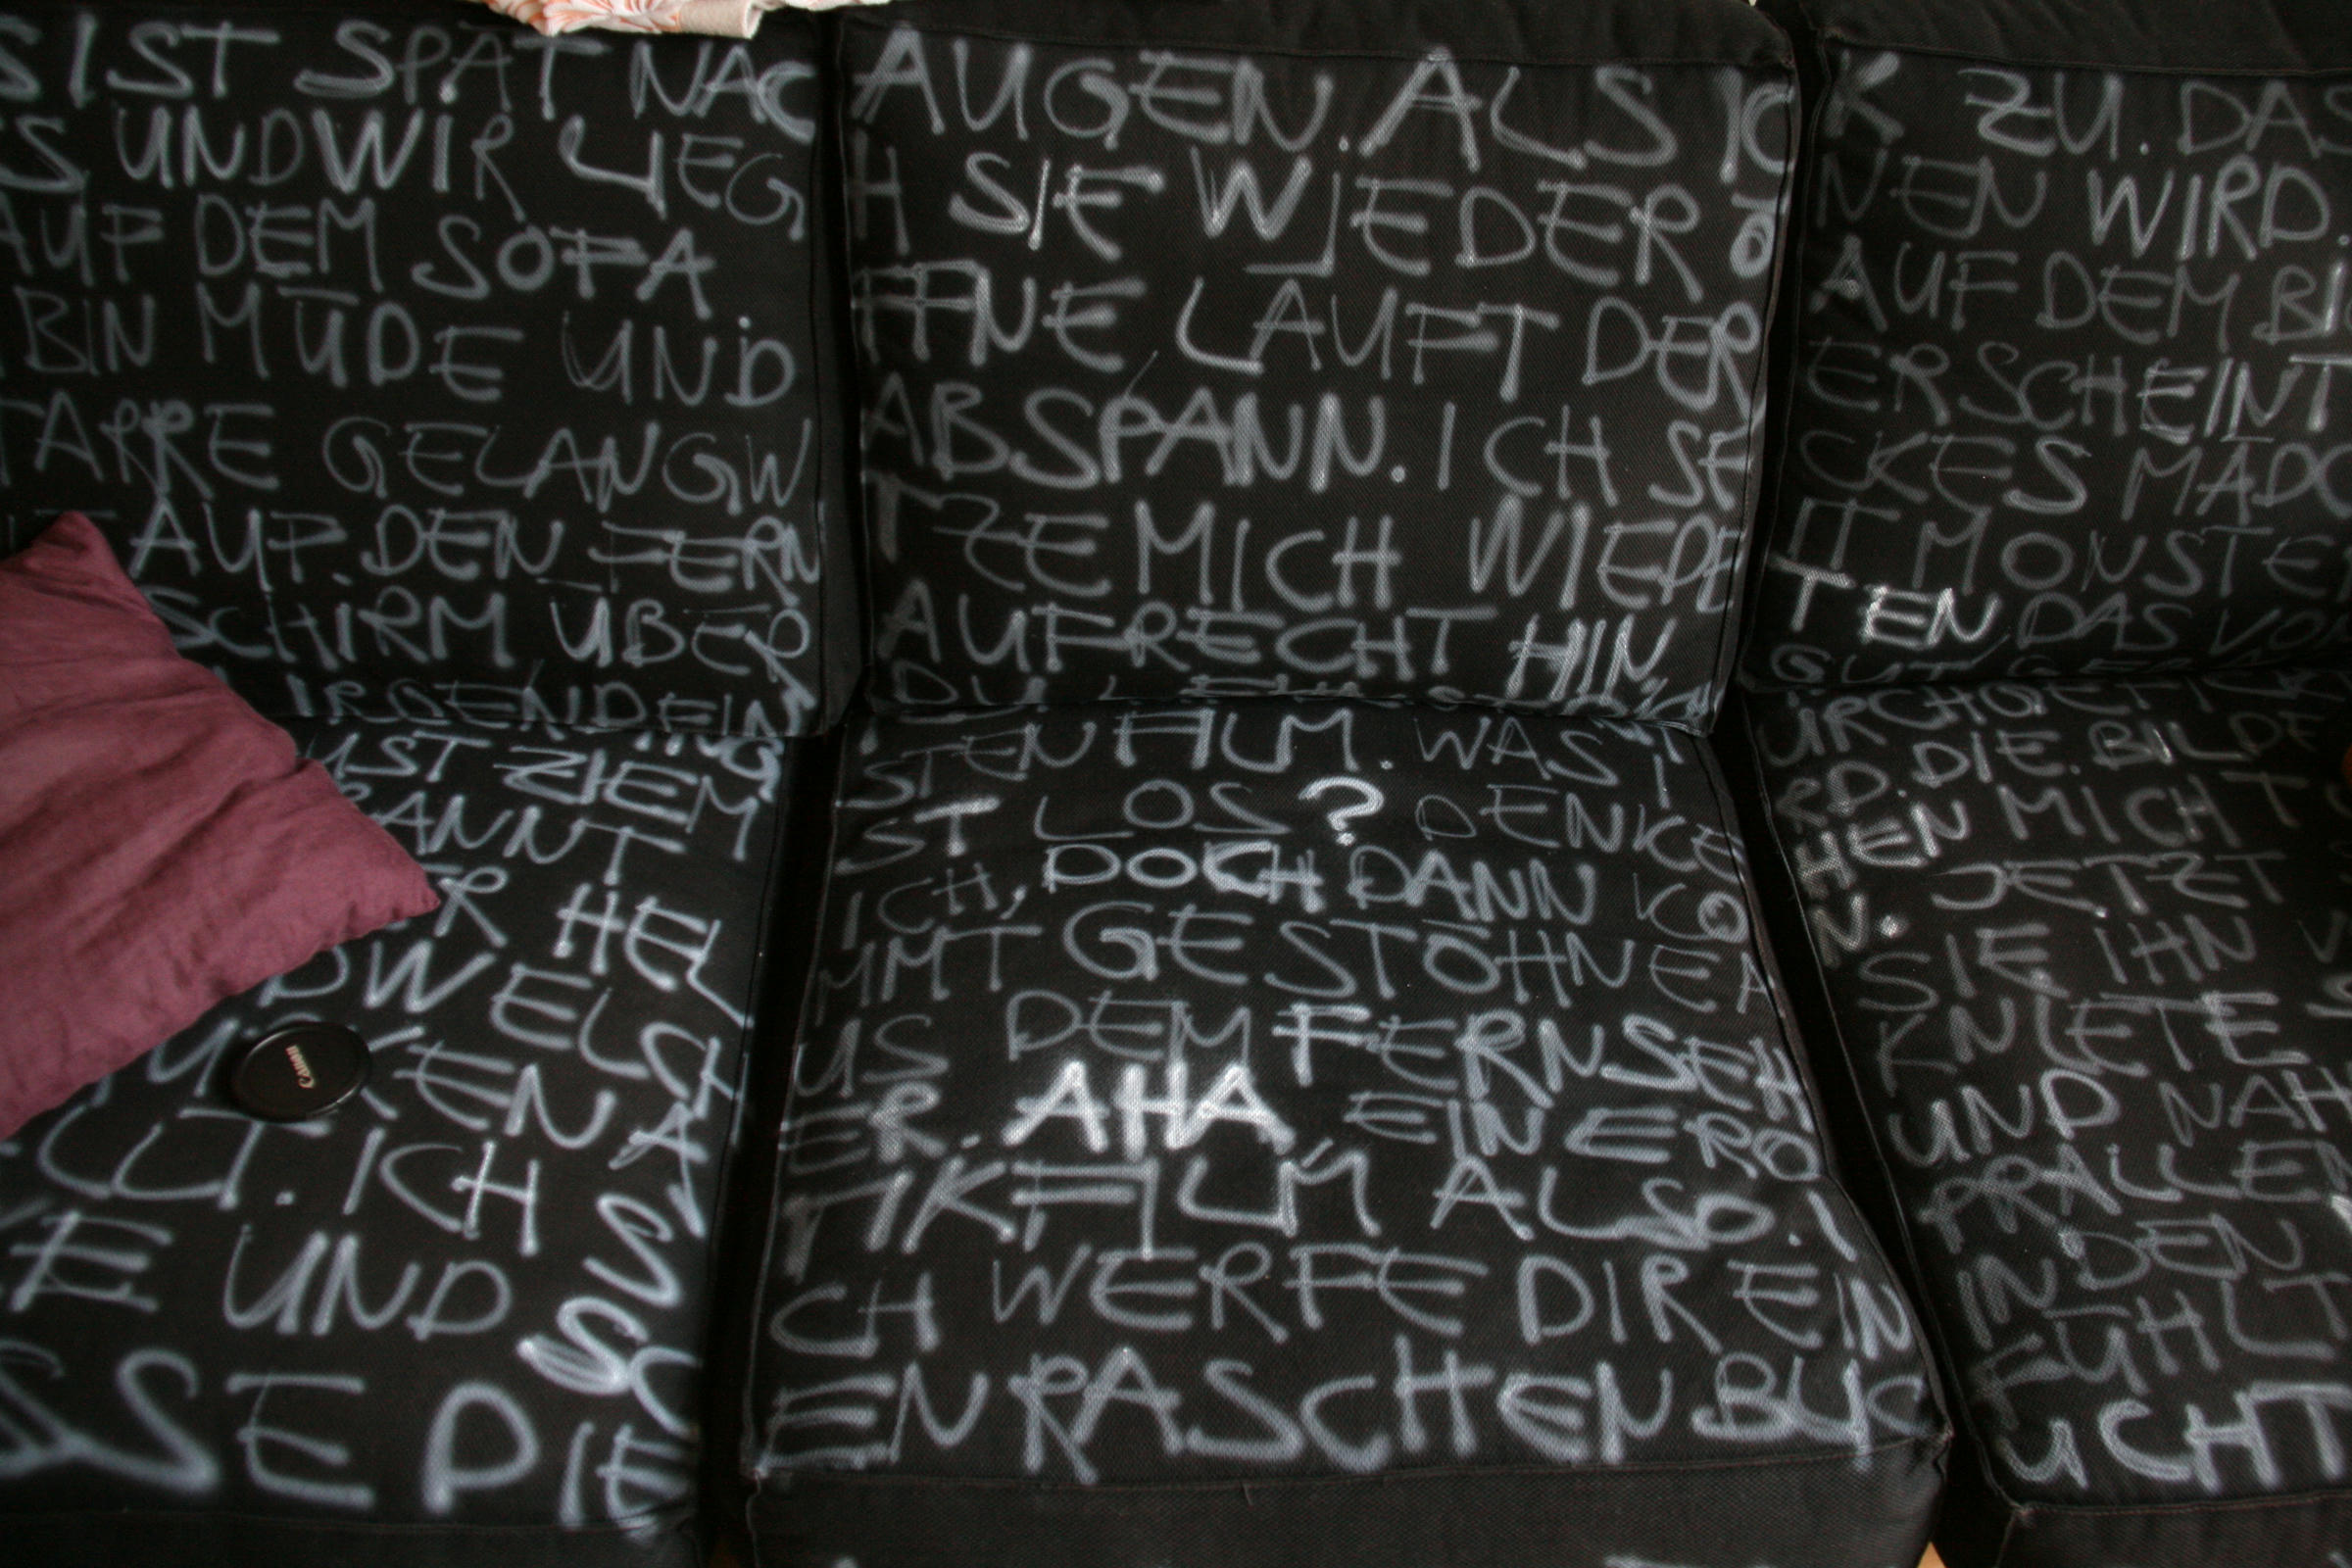 S IST SPÄT NAC
S UND WIR LIEG
AUF DEM SOFA
BIN MÜDE UND
TARRE GELANGW
AUF DEN FERN
SCHIRM ÜBER
IRGENDEIN
UST ZIEM
RANNT
ER HEL
DWELCH
EN A
LLT. ICH SUS
E UND
SSE DIE
Canon
AUGEN. ALS IC
H SIE WIEDER Ö
FFNE LÄUFT DER
ABSPANN. ICH SE
TZE MICH WIEDE
AUFRECHT HIN
STEN FILM. WAS I
ST LOS? DENKE
ICH, DOCH DANN KO
MMT GESTÖHNE A
US DEM FERNSEH
ER. AHA, EIN ERO
TIKFILM ALSO. I
CH WERFE DIR EIN
EN RASCHEN BLIC
K ZU. DAS
NEN WIRD.
AUF DEM BI
ERSCHEINT
CKES MÄDC
IT MONSTE
TEN DAS VO
GUT
URCHGE
RD. DIE BILDE
HEN MICH
N. JETZT
SIE IHN
KNIETE
UND NAH
PRALLEN
INDEN
FÜHLT
UCHT